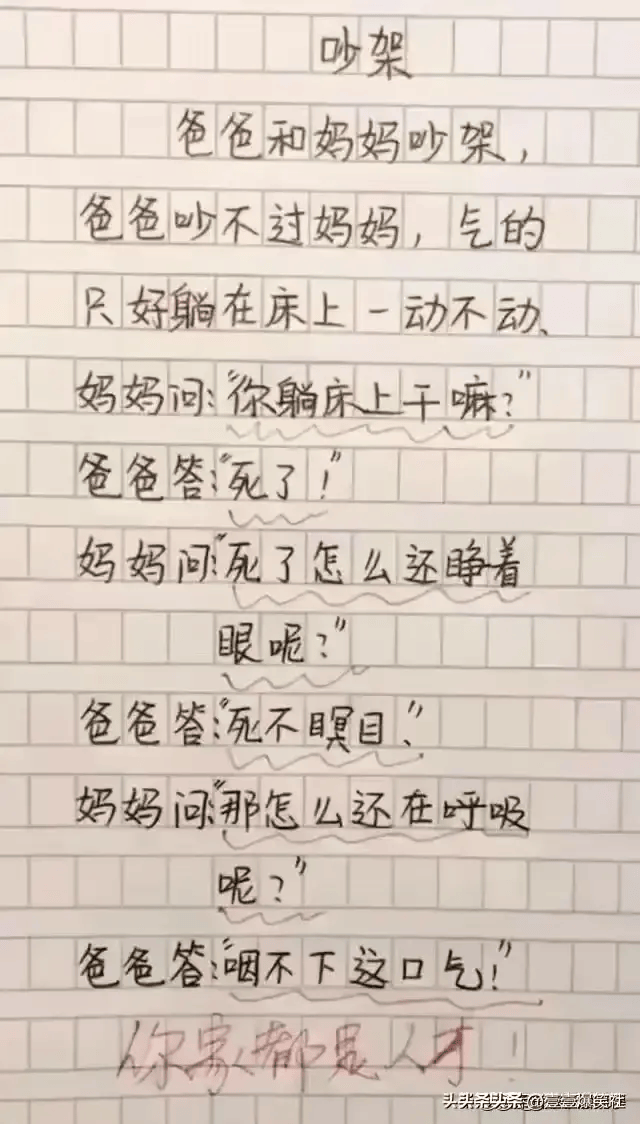 吵架
爸爸和妈妈吵架,
爸爸吵不过妈妈,气的
只好躺在床上一动不动、
妈妈问:"你躺床上干嘛?"
爸爸答:"死了!"
妈妈问:"死了怎么还睁着
眼呢?"
爸爸答:"死不瞑目."
妈妈问:"那怎么还在呼吸
呢?"
爸爸答:"咽不下这口气!"
你家都是人才!